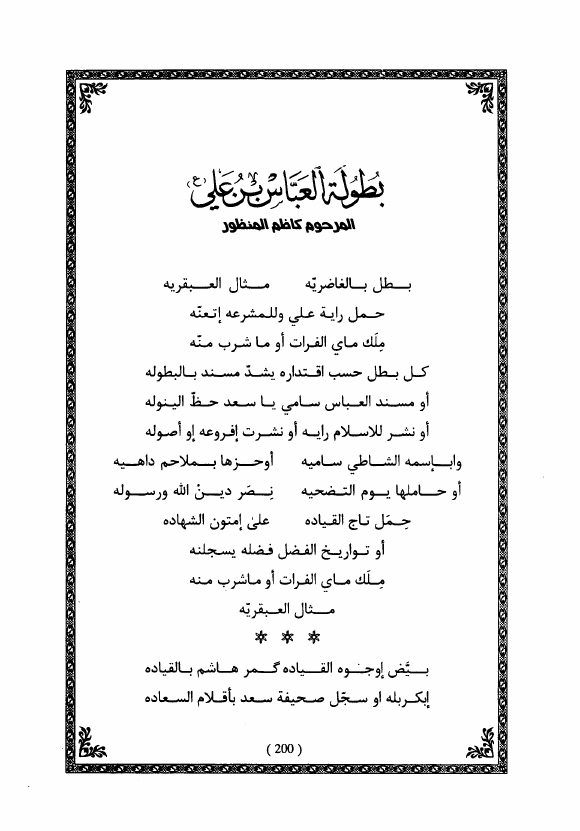 بطولة العبّاس بن علي (ع)
المرحوم كاظم المنظور
بـطل بـالغاضريّه مـثال العـبقريه
حـمل راية علي وللمشرعه إتعنّه
مِلَك ماي الفرات أو ما شرب منّه
كـل بـطل حسب اقـتداره يشدّ مسند بالبطوله
أو مسند العباس سامي يا سعد حظّ الينوله
أو نشر للاسلام رايه أو نشرت إفروعه إو أصوله
وابـإسمه الشاطي ساميه أوحـزها بـملاحم داهـيه
أو حـاملها يـوم التـضحيه نِـصَر ديـنْ الله ورسـوله
حِـمَل تـاج القـياده علىٰ إمتون الشهاده
أو تـواريخ الفضل فضله يسجلنه
مِـلَك مـاي الفرات أو ماشرب منه
مـثال العـبقريّه
* * *
بـيَّض إوجـوه القـياده گـمر هـاشم بـالقياده
إبكربله او سجّل صحيفة سعد بأقلام السعاده
( 200 )